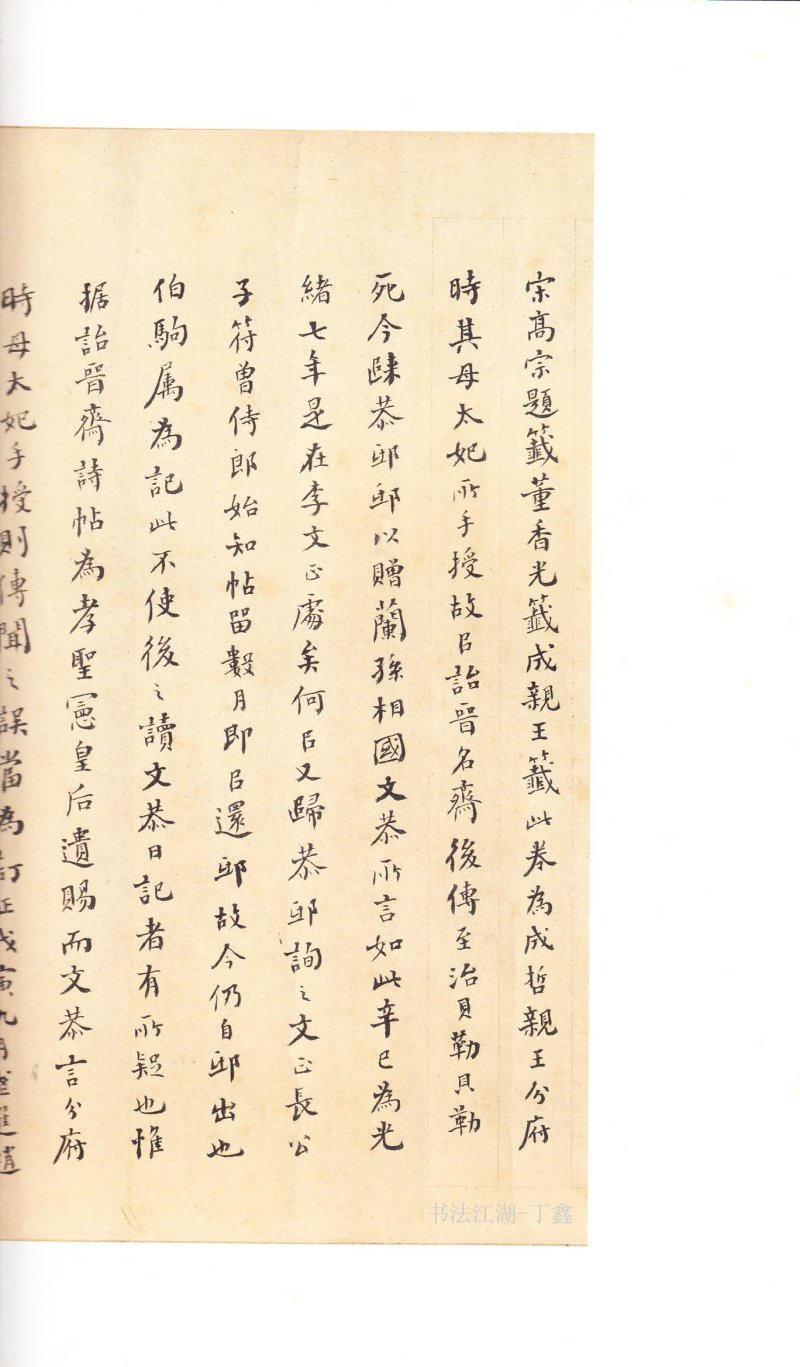 宋高宗題籤董香光籤成親王籤此卷為成哲親王分府
時其母太妃所手授故㠯詒晉名齋後傳至治貝勒貝勒
死今歸恭邸邸以贈蘭孫相國文恭所言如此辛巳為光
緒七年是在李文正處矣何㠯又歸恭邸詢之文正長公
子符曾侍郎始知帖留數月即㠯還邸故今仍自邸出也
伯駒属為記此不使後之讀文恭日記者有所疑也惟
据詒晉齋詩帖為孝聖憲皇后遺賜而文恭言分府
時母太妃手授則傳聞之誤當為訂正戊寅九月
书法江湖-丁鑫